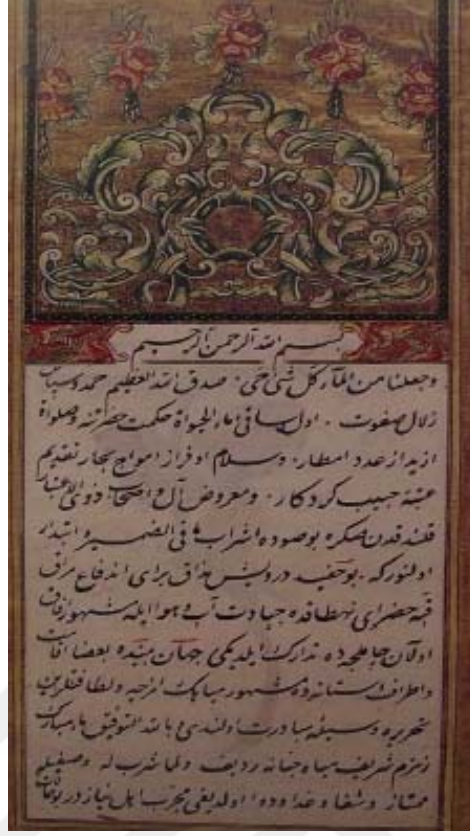 بسم الله الرحمن الرحيم
وجعلنا من المآء كل شئ حى . صدق الله العظيم حمد وسپاس
زلال صفوت . اول ساقئ ماء الحيوة حكمت حضرتنه وصلوة
ازيد از عدد امطار . وسلام اوفر از امواج بحار تقديم
عتبهٔ حبيب كردكار . ومعروض آل واصحاب ذوى الاعتبار
قلندقدن صكره بوصوده اشراب ما فى الضميره ابتدار
اولنوركه . بوحفيد درويش مذاق براى اندفاع مراق
قبهٔ خضراى نه طاقده جيادت آب وهوا ايله مشهور آفاق
اولان چاملجه ده تدارك ايلديكى
واطراف آستانه ده مشهور مياهك امزجه ولطافتلرين
تحريره وسيله مبادرت اولندى وبالله التوفيق ماء مبارك
زمزم شريف ردیف ولما شرب له وصفيله
ممتاز وشفا وغدا ودوا اولديغى مجرب اهل نياز در